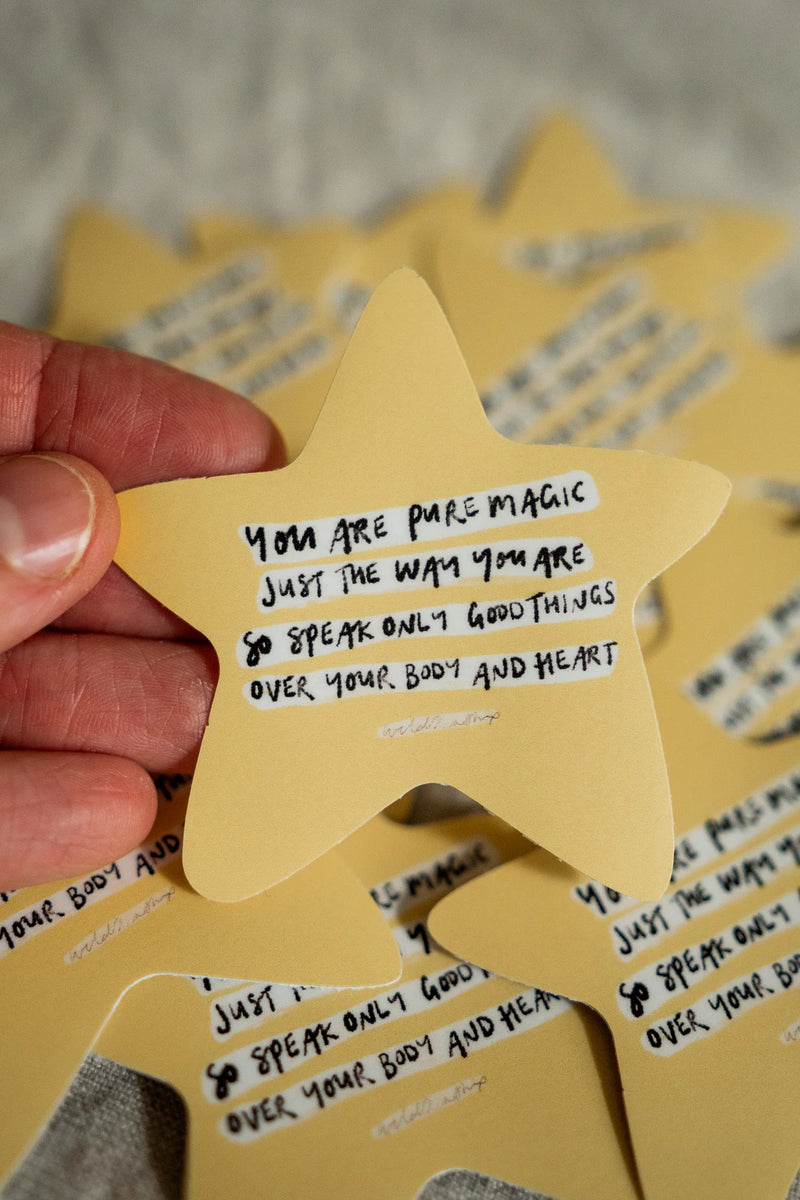 YOU ARE PURE MAGIC
JUST THE WAY YOU ARE
SO SPEAK ONLY GOOD THINGS
OVER YOUR BODY AND HEART
YOUR BODY AND
ARE MAGIC
JUST
SO SPEAK ONLY GOOD
OVER YOUR BODY AND HEAR
YOU ARE PURE MA
JUST THE WAY Y
SO SPEAK ONLY
OVER YOUR BOD